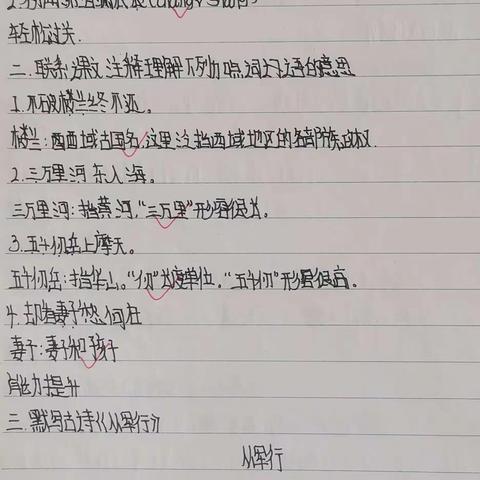 轻松过关.
二.联系课文注释理解下列加点词语的意思
1.不破楼兰终不还。
楼兰:西西域古国名,这里泛指西域地区的各部族政权.
2.三万里河东入海。
三万里河:指黄河,“三万里”形容很长。
3.五千仞岳上摩天。
五千仞岳:指华山。“仞”长度单位,“五千仞”形容很高。
4.却看妻子愁何在
妻子:妻子和孩子
能力提升
三.默写古诗《从军行》
从军行